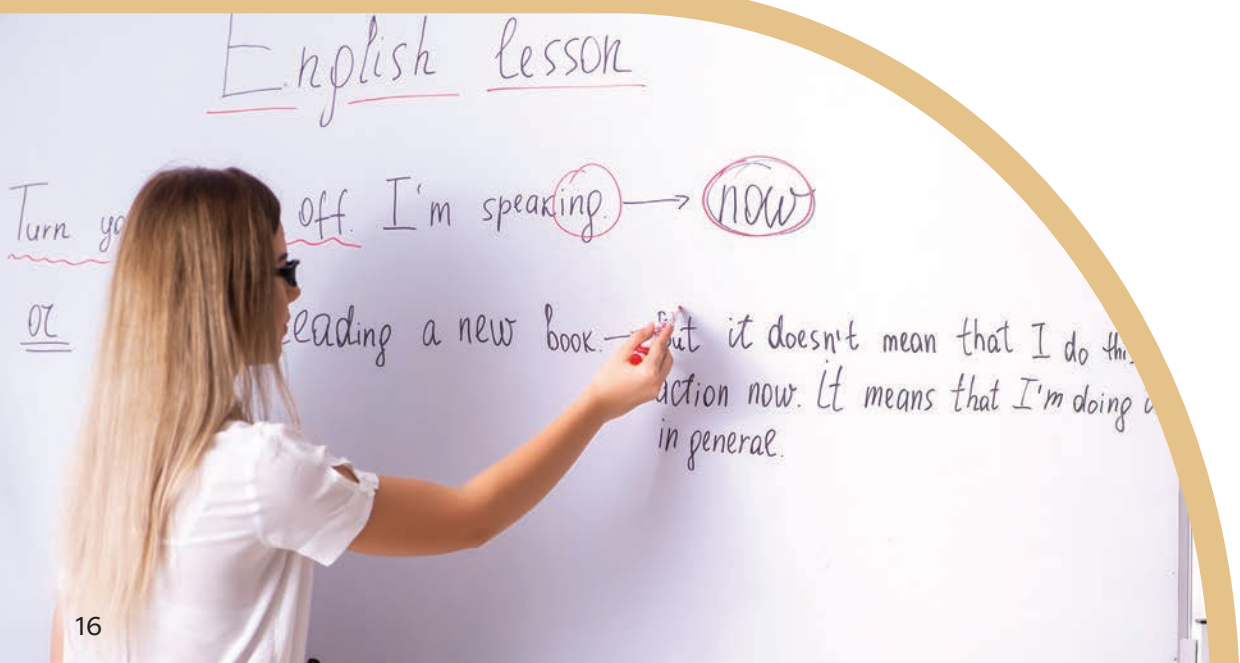 English lesson
Turn off. I'm speaking. → now
or a new book. → but it doesn't mean that I do
action now. It means that I'm doing
in general.
16